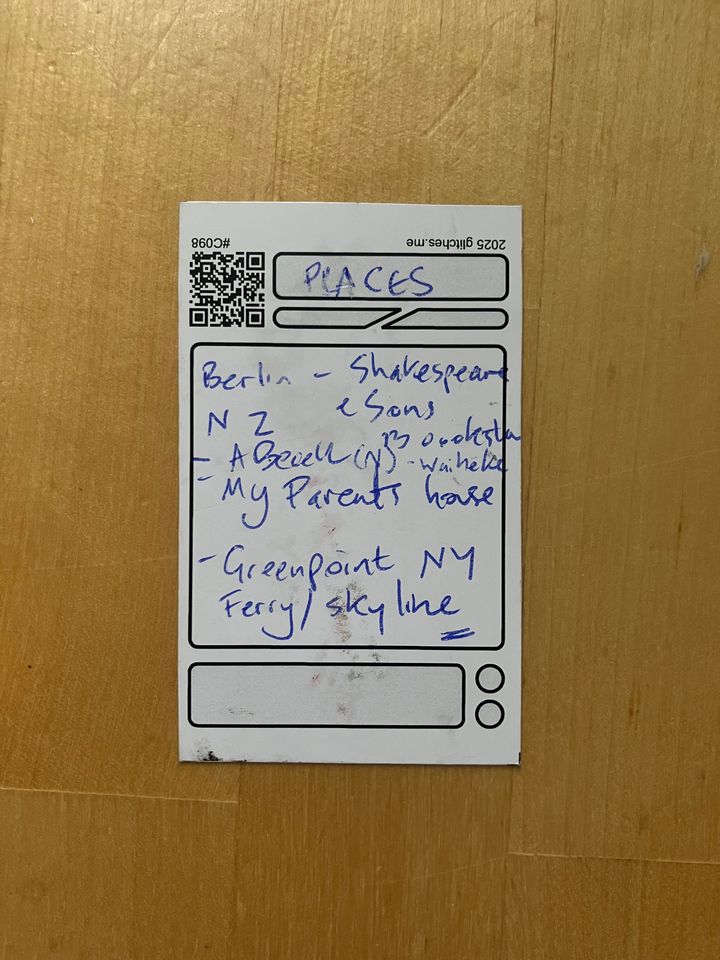 #C098
2025 glitches.me
PLACES
Berlin - Shakespeare
& Sons
NZ
- A Beach (N) - Waiheke
- My Parents house
- Greenpoint NY
Ferry/skyline